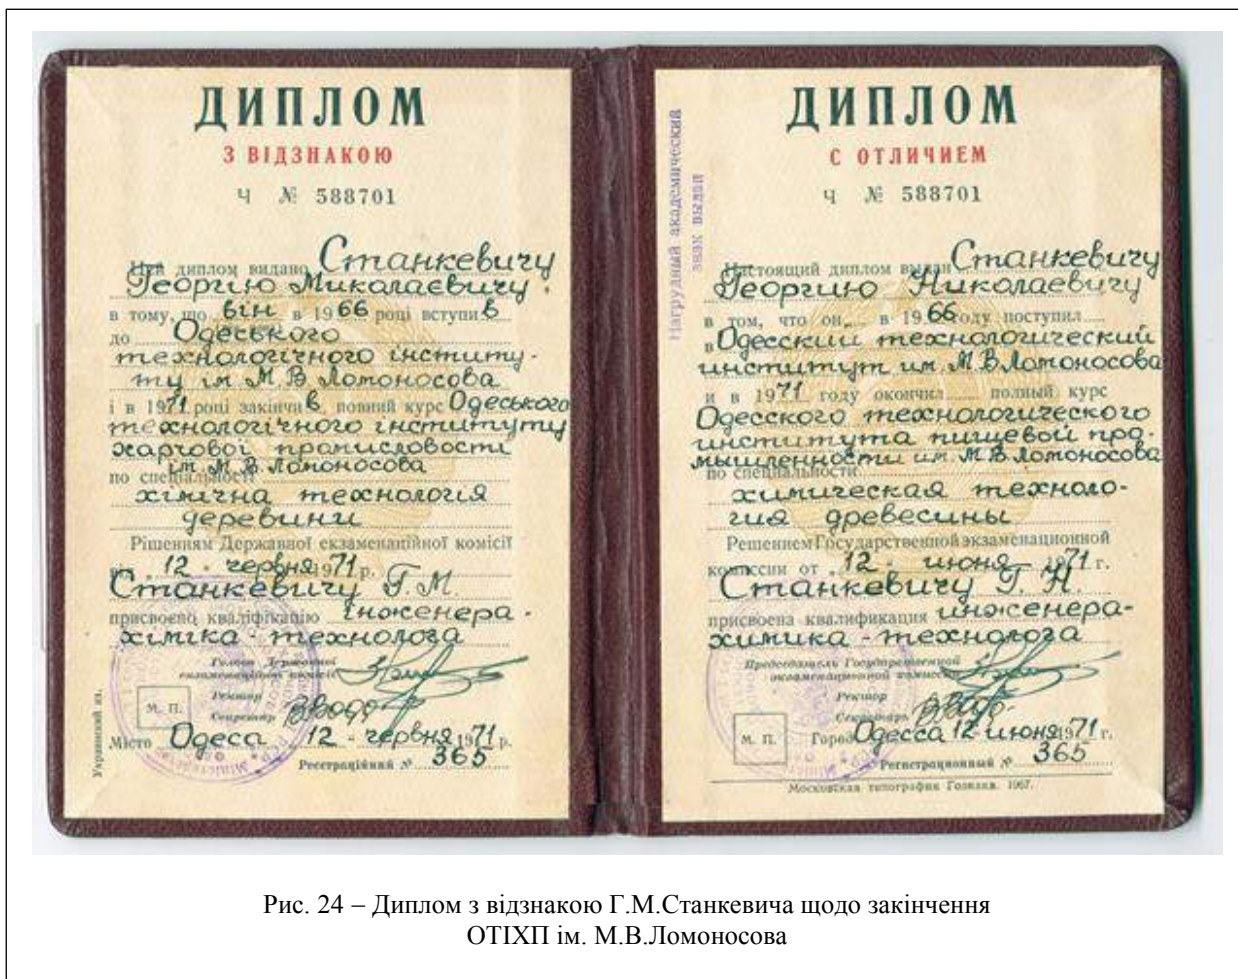 ДИПЛОМ
З ВІДЗНАКОЮ
Ч № 588701
Цей диплом видано Станкевичу
Георгію Миколаєвичу.
в тому, що він в 1966 році вступив
до Одеського
технологічного інститу-
ту ім. М.В Ломоносова
і в 1971 році закінчив повний курс Одеського
технологічного інституту
харчової промисловості
ім. М.В. Ломоносова
по спеціальності
хімічна технологія
деревини
Рішенням Державної екзаменаційної комісії
від 12 - червня 1971 р.
Станкевичу Г.М.
присвоєно кваліфікацію інженера-
хіміка-технолога
Голова Державної
екзаменаційної комісії
Ректор
Секретар
М. П.
Місто Одеса 12 - червня 1971 р.
Реєстраційний № 365
Украинский яз.
ДИПЛОМ
С ОТЛИЧИЕМ
Ч № 588701
Нагрудный академический
знак выдан
Настоящий диплом выдан Станкевичу
Георгию Николаевичу
в том, что он в 1966 году поступил
в Одесский технологический
институт им. М.В.Ломоносова
и в 1971 году окончил полный курс
Одесского технологического
института пищевой про-
мышленности им. М.В.Ломоносова
по специальности
химическая техноло-
гия древесины
Решением Государственной экзаменационной
комиссии от 12 - июня 1971 г.
Станкевичу Г. Н.
присвоена квалификация инженера-
химика-технолога
Председатель Государственной
экзаменационной комиссии
Ректор
Секретарь
М. П.
Город Одесса 12 - июня 1971 г.
Регистрационный № 365
Московская типография Гознака. 1967.
Рис. 24 – Диплом з відзнакою Г.М.Станкевича щодо закінчення
ОТІХП ім. М.В.Ломоносова